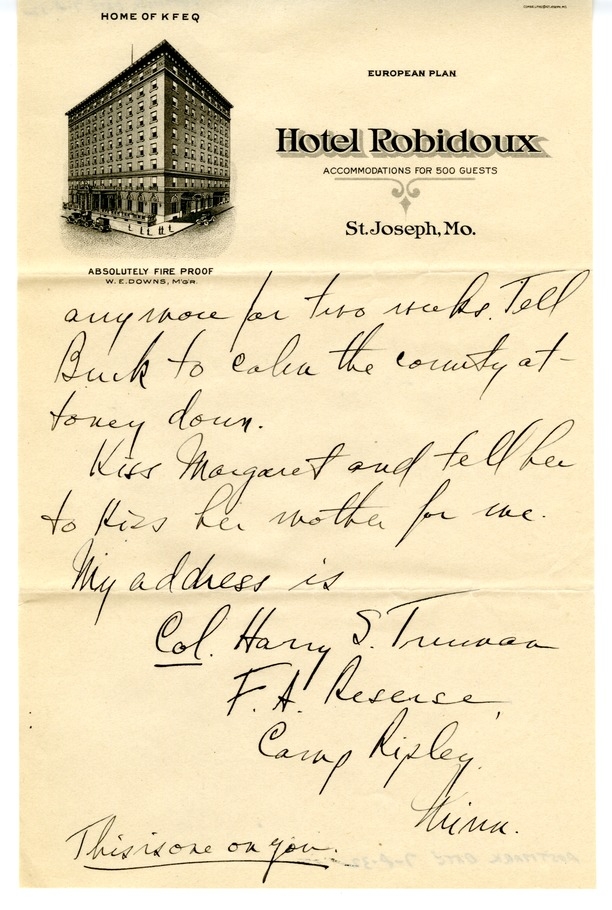 HOME OF KFEQ
EUROPEAN PLAN
Hotel Robidoux
ACCOMMODATIONS FOR 500 GUESTS
St. Joseph, Mo.
ABSOLUTELY FIRE PROOF
W. E. DOWNS, M'G'R.
anymore for two weeks. Tell
Buck to calm the county at-
torney down.
Kiss Margaret and tell her
to kiss her mother for me.
My address is
Col. Harry S. Truman
F. A. Reserve,
Camp Ripley,
Minn.
This is one on you.